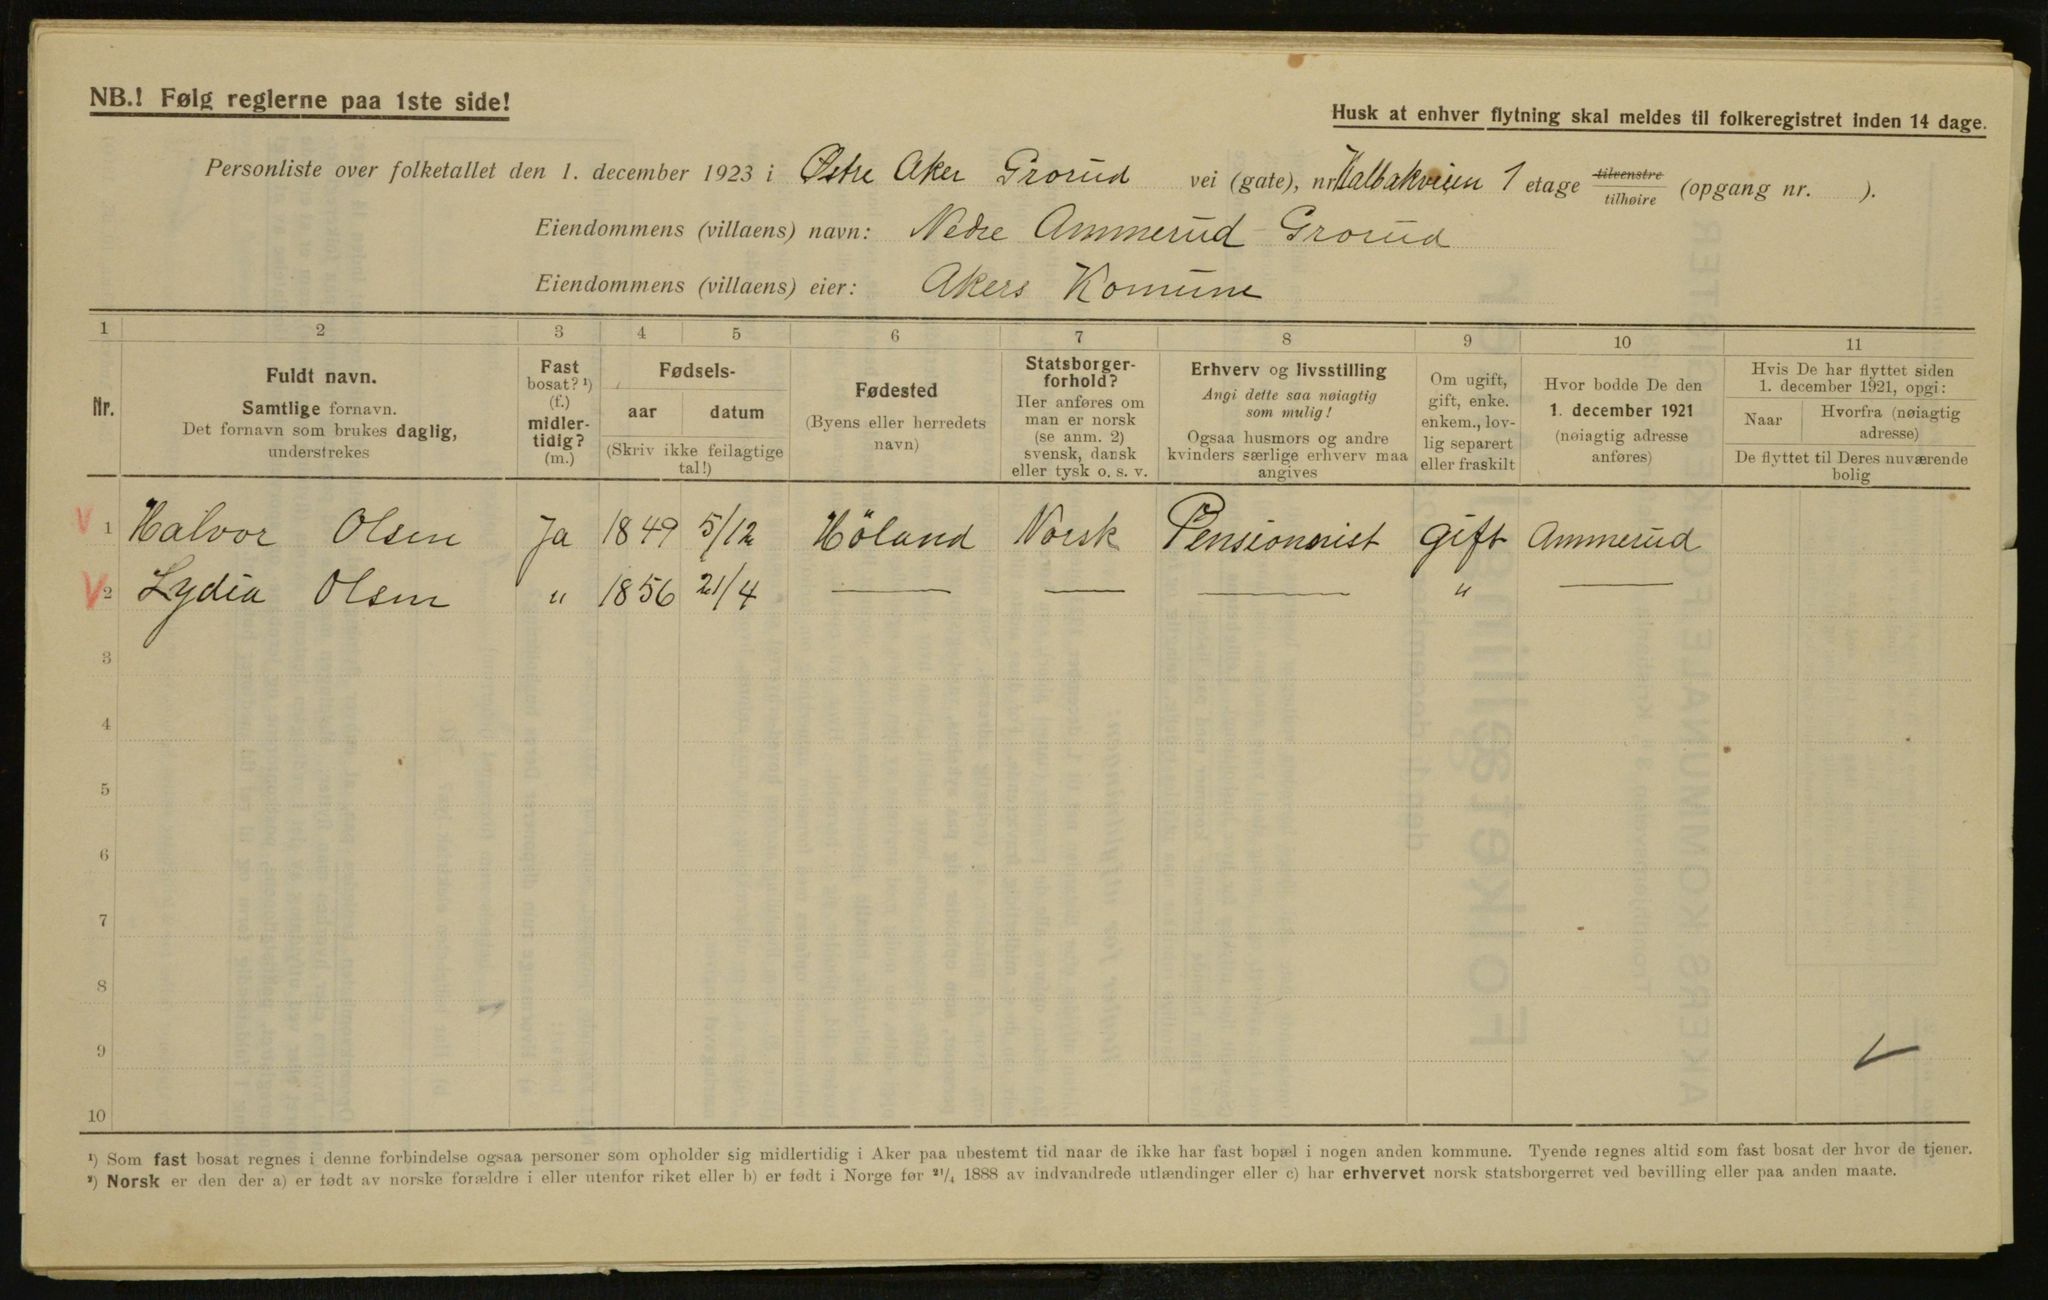 NB.! Følg reglerne paa 1ste side!
Husk at enhver flytning skal meldes til folkeregistret inden 14 dage.
Personliste over folketallet den 1. december 1923 i Østre Aker Grorud vei (gate), nr. Kalbakveien 1 etage tilvenstre tilhøire (opgang nr. ).
Eiendommens (villaens) navn: Nedre Ammerud Grorud
Eiendommens (villaens) eier: Akers Komune
1 2 3 4 5 6 7 8 9 10 11
Nr.
Fuldt navn.
Samtlige fornavn.
Det fornavn som brukes daglig,
understrekes
Fast
bosat? ¹)
(f.)
midler-
tidig?
(m.)
Fødsels-
aar datum
(Skriv ikke feilagtige
tal!)
Fødested
(Byens eller herredets
navn)
Statsborger-
forhold?
Her anføres om
man er norsk
(se anm. 2)
svensk, dansk
eller tysk o. s. v.
Erhverv og livsstilling
Angi dette saa nøiagtig
som mulig!
Ogsaa husmors og andre
kvinders særlige erhverv maa
angives
Om ugift,
gift, enke.
enkem., lov-
lig separert
eller fraskilt
Hvor bodde De den
1. december 1921
(nøiagtig adresse
anføres)
Hvis De har flyttet siden
1. december 1921, opgi:
Naar
Hvorfra (nøiagtig
adresse)
De flyttet til Deres nuværende
bolig
1 Halvor Olsen Ja 1849 5/12 Höland Norsk Pensionnist gift Ammerud
2 Lydia Olsen " 1856 21/4 — — — " —
3
4
5
6
7
8
9
10
¹) Som fast bosat regnes i denne forbindelse ogsaa personer som opholder sig midlertidig i Aker paa ubestemt tid naar de ikke har fast bopæl i nogen anden kommune. Tyende regnes altid som fast bosat der hvor de tjener.
²) Norsk er den der a) er født av norske forældre i eller utenfor riket eller b) er født i Norge før ²¹/₄ 1888 av indvandrede utlændinger eller c) har erhvervet norsk statsborgerret ved bevilling eller paa anden maate.